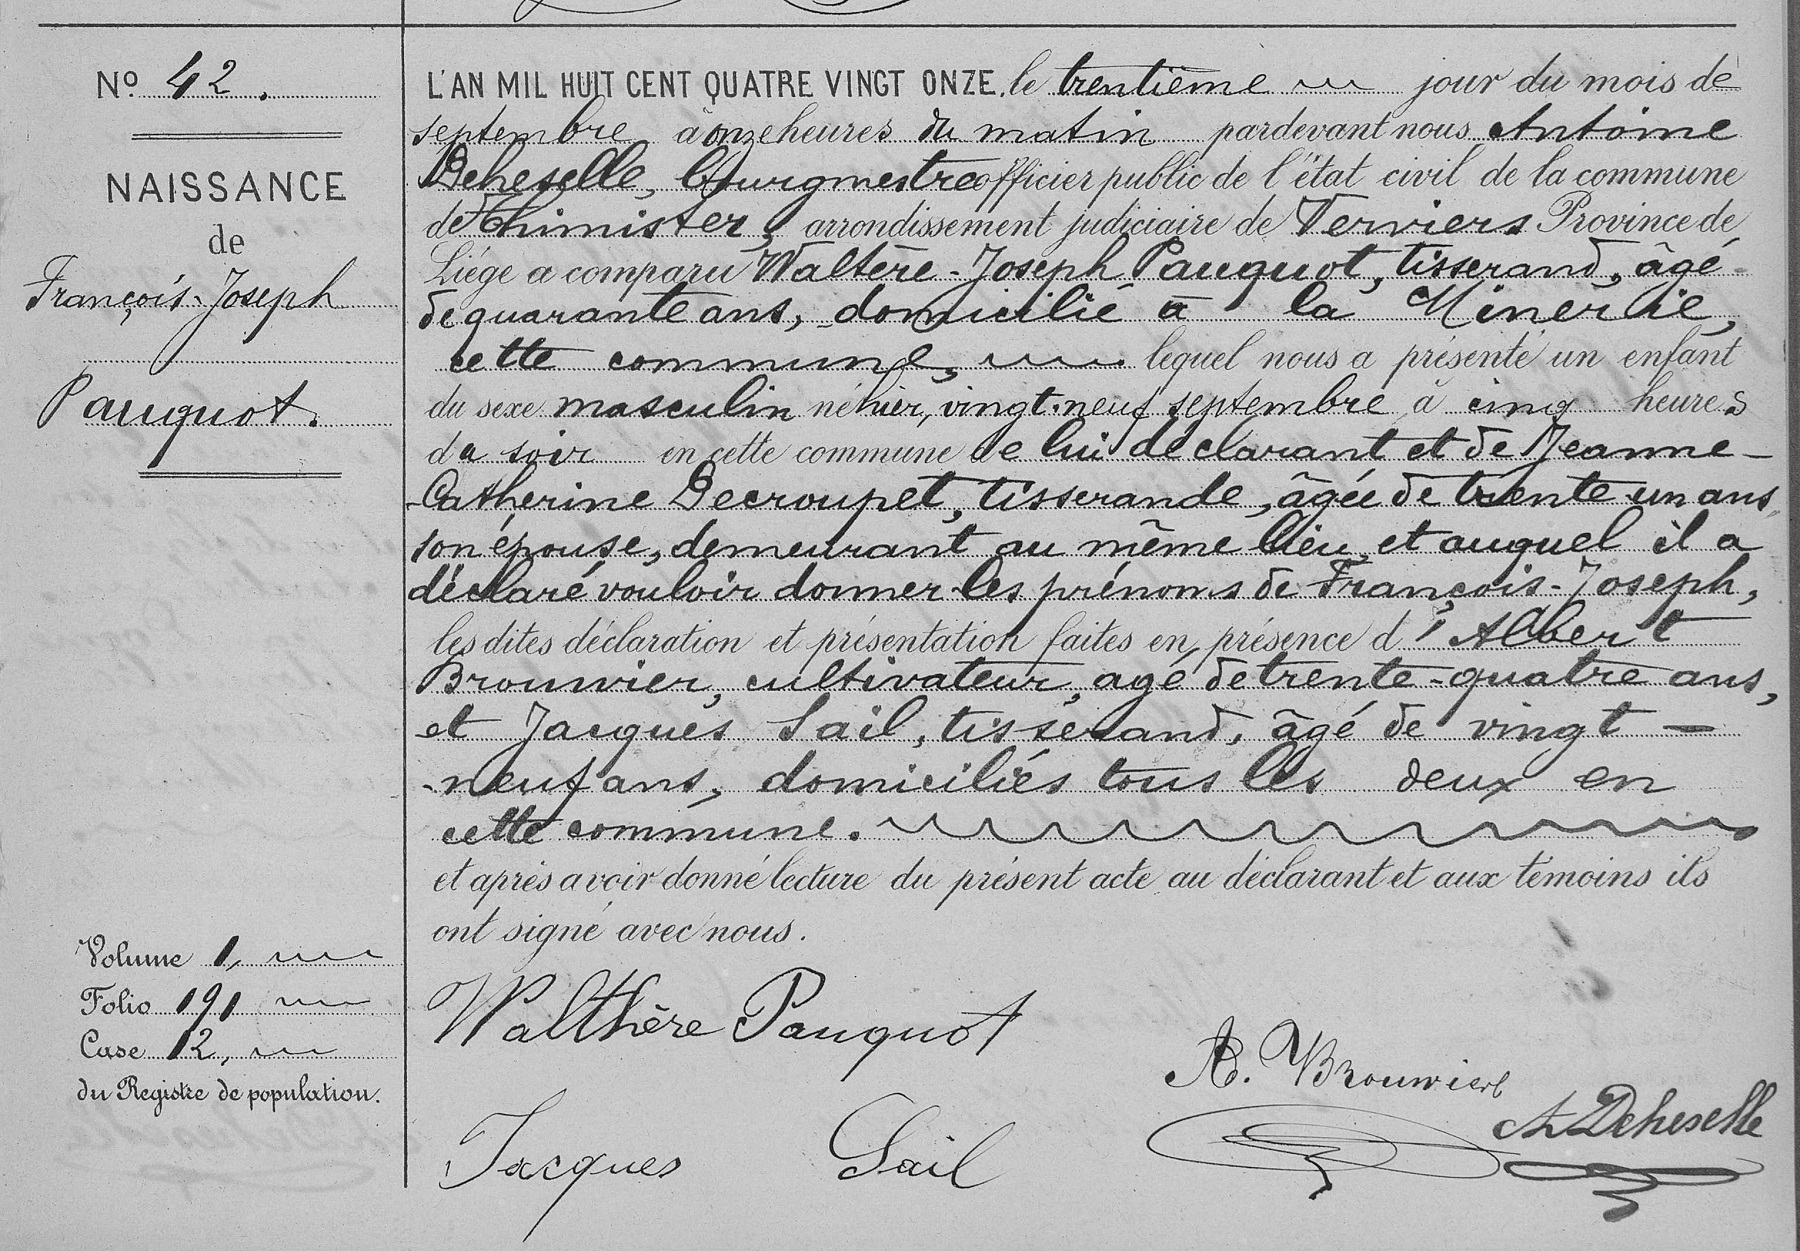 No 42.
NAISSANCE
de
François-Joseph
Pauquot.
Volume 1,
Folio 191
Case 12,
du Registre de population.
L'AN MIL HUIT CENT QUATRE VINGT ONZE, le trentième jour du mois de
septembre à onze heures du matin pardevant nous Antoine
Deheselle, bourgmestre officier public de l'état civil de la commune
de Thimister, arrondissement judiciaire de Verviers Province de
Liége a comparu Waltère-Joseph Pauquot, tisserand, âgé
de quarante ans, domicilié à la Minerie,
cette commune, lequel nous a présenté un enfant
du sexe masculin né hier, vingt-neuf septembre à cinq heures
du soir en cette commune de lui déclarant et de Jeanne-
-Catherine Decroupet, tisserande, âgée de trente-un ans,
son épouse, demeurant au même lieu, et auquel il a
déclaré vouloir donner les prénoms de François-Joseph,
les dites déclaration et présentation faites en présence d'Albert
Brouwier, cultivateur, agé de trente-quatre ans,
et Jacques Sail, tisserand, âgé de vingt-
-neuf ans, domiciliés tous les deux en
cette commune.
et après avoir donné lecture du présent acte au déclarant et aux témoins ils
ont signé avec nous.
Walthère Pauquot
A. Brouwier
A Deheselle
Jacques Sail